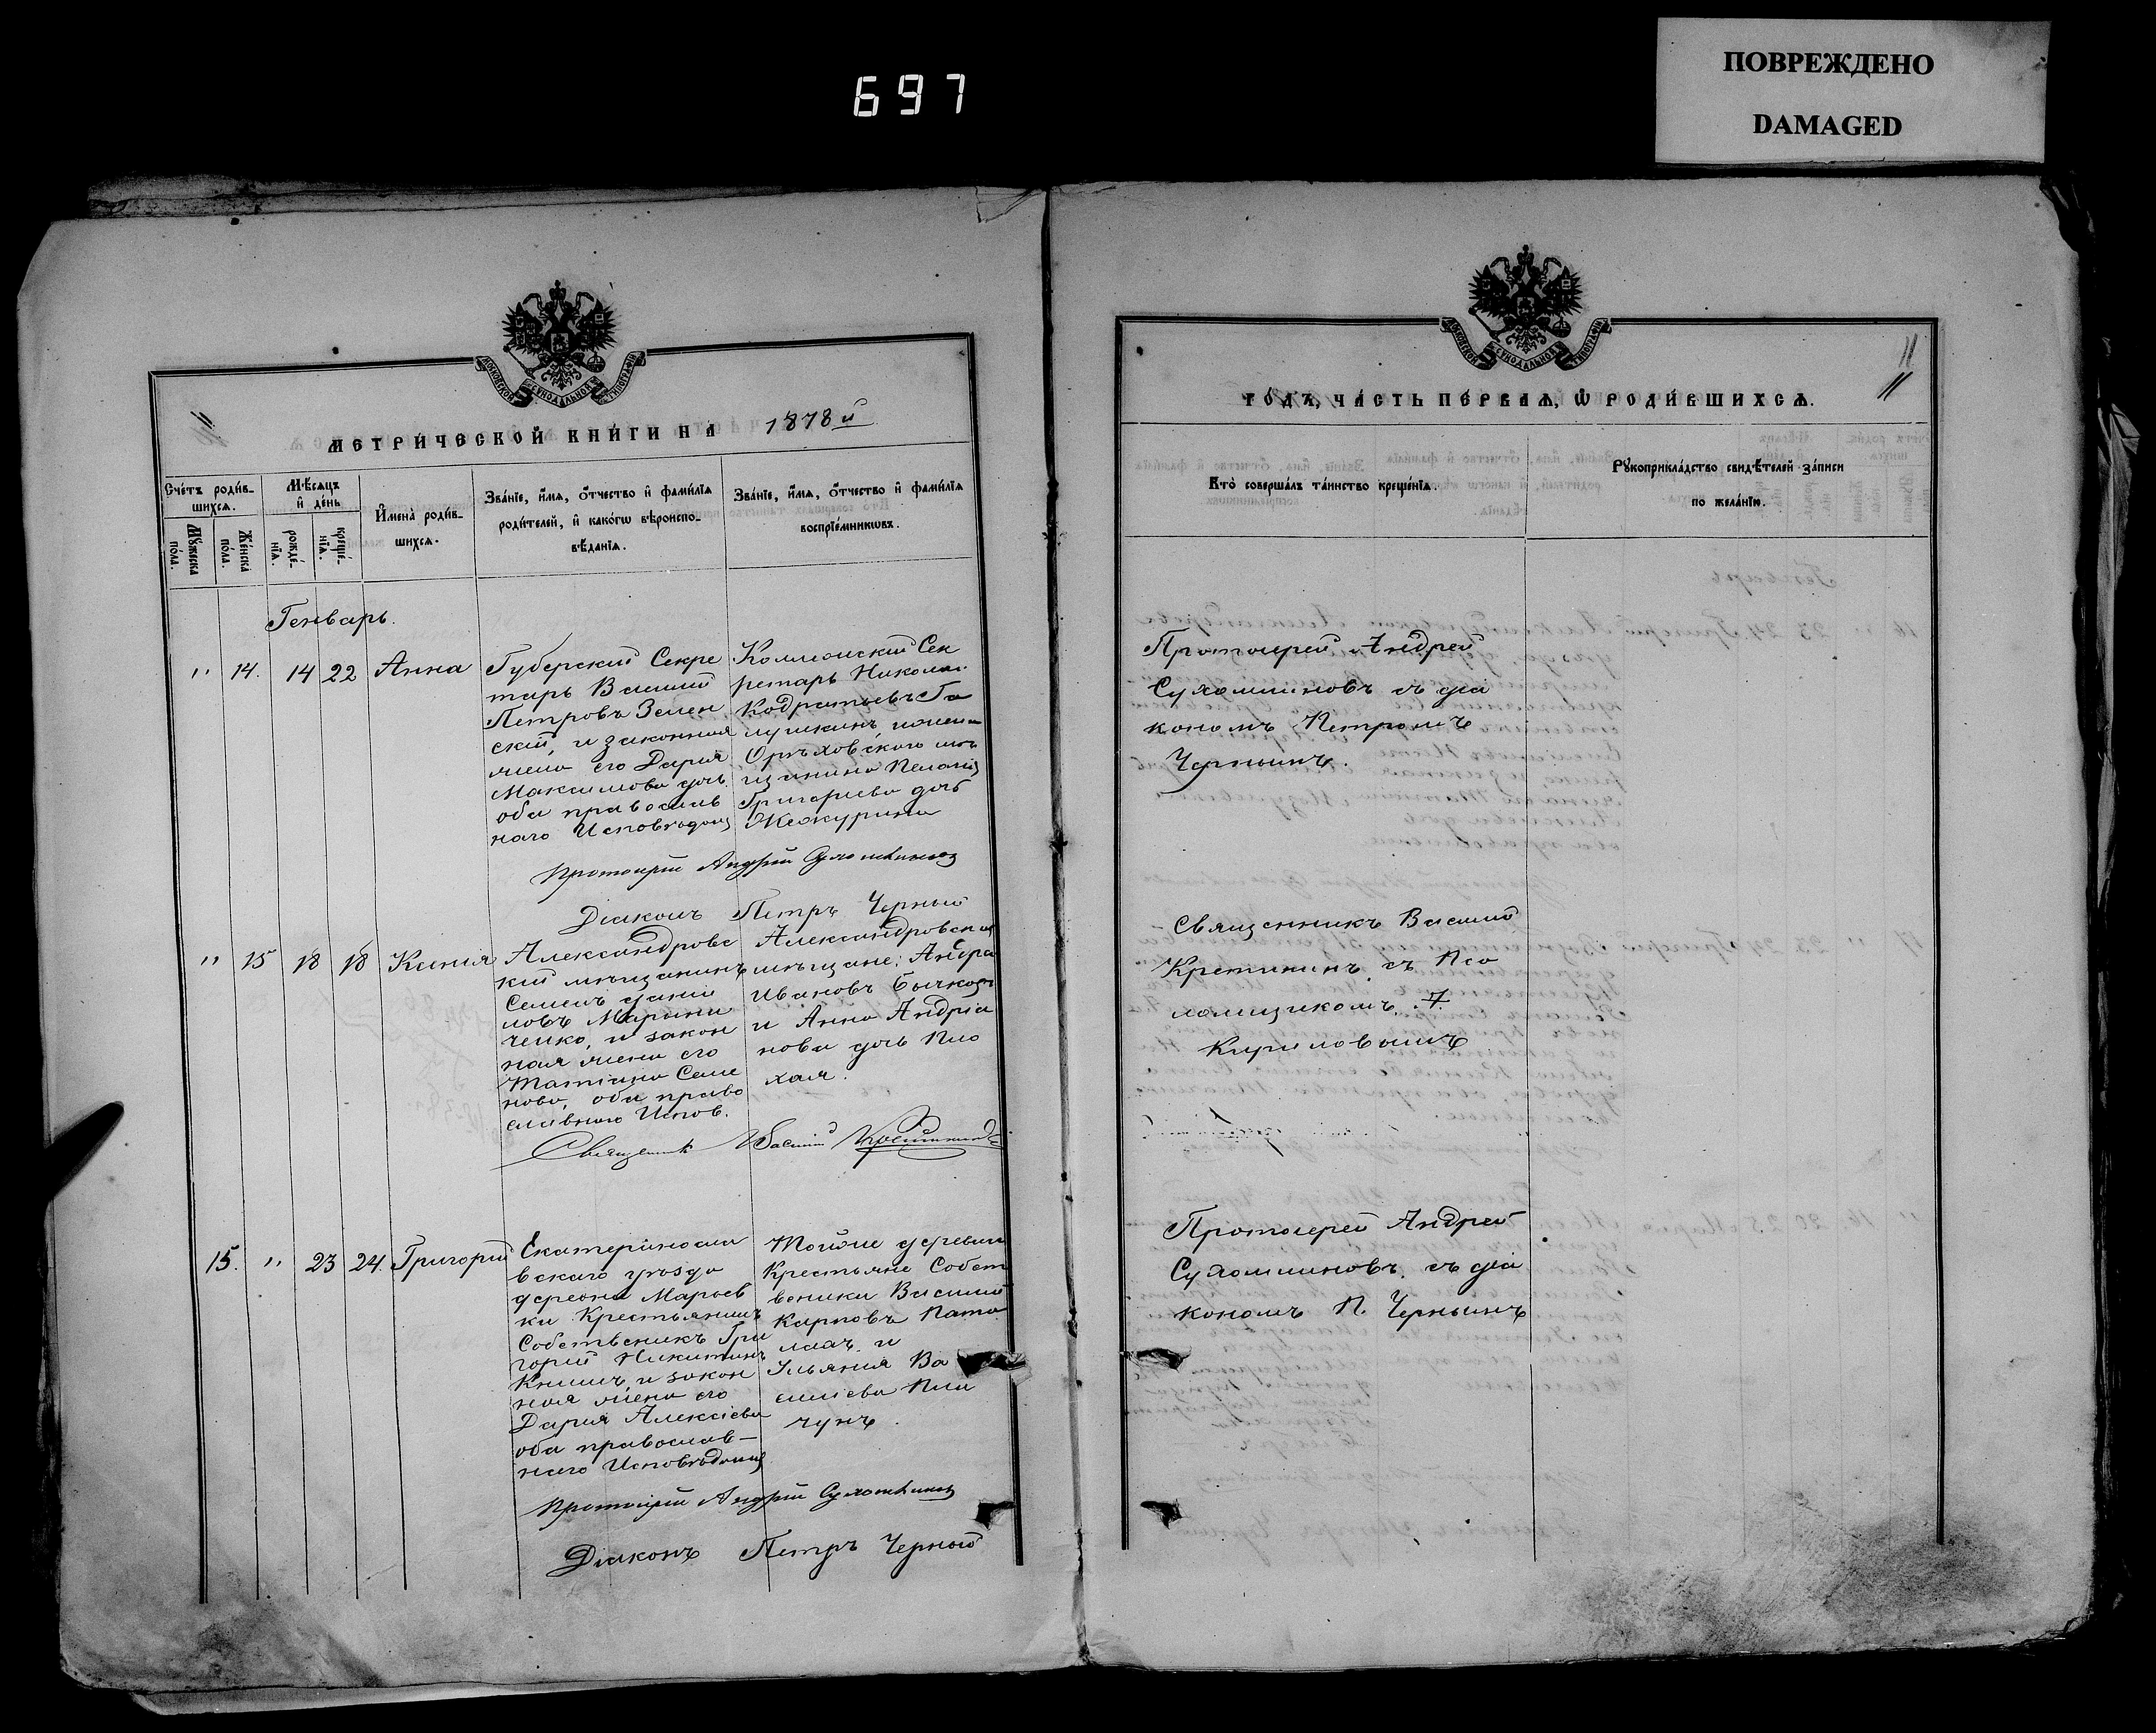 697
ПОВРЕЖДЕНО
DAMAGED
МЕТРИ́ЧЕСКОЙ КНИ́ГИ НА 1878й
Сче́тъ роди́в-
шихсѧ.
Мѣ́сѧцъ
и҆ де́нь
Мꙋ́жеска по́ла.
Же́нска по́ла.
рожде́-
нїѧ.
креще́-
нїѧ.
И҆мена̀ роди́в-
шихсѧ.
Зва́нїе, и҆́мѧ, ѻ҆́тчество и҆ фами́лїѧ
роди́телей, и҆ како́гѡ вѣроиспо-
вѣ́данїѧ.
Зва́нїе, и҆́мѧ, ѻ҆́тчество и҆ фами́лїѧ
воспрїе́мникѡвъ.
Генварь.
" 14. 14 22 Анна
Губерский Секре
тарь Василий
Петровъ Зелен
ский, и законная
жена его Дария
Максимова дочь
оба православ
наго
Секретарь Николай
Кодратьевъ Га
лушкинъ,
Орѣховского мѣ
щанина
Григориева дочь
Протоиерей Андрей Сухомлиновъ
Діаконъ Петръ Черный
" 15 18 18 Ксения
Александровс
кий мѣщанинъ
Семенъ Дании
ловъ Марини
ченко, и закон
ная жена его
Татиана Семе
нова, оба право
славнаго Испов.
Александровские
мѣщане: Андрей
Ивановъ Бычковъ
и Анна Андріа
нова дочь Пло
хая.
Священникъ Василий
15. " 23 24. Григорий
Екатеринослав
вскаго уѣзда
деревни Мариев
ки Крестьянинъ
Собственикъ Гри
горий Никитинъ
Книшъ, и закон
ная жена его
Дария Алексіева
оба православ-
наго
Тойже деревни
Крестьяне Собст
веники Василий
Карповъ
и
Ульяния Ва
силиева
Протоиерей Андрей Сухомлиновъ
Діаконъ Петръ Черный
11
ГО́ДЪ, ЧА́СТЬ ПЕ́РВАѦ, Ѡ҆ РОДИ́ВШИХСѦ.
Кто̀ соверша́лъ та́инство креще́нїѧ.
Рꙋкоприкла́дство свидѣ́телей за́писи
по жела́нїю.
Протоиерей Андрей
Сухомлиновъ съ діа
кономъ Петромъ
Чернымъ.
Священникъ Василий
съ Пса
ломщикомъ.
Кириловымъ
Протоиерей Андрей
Сухомлиновъ. съ діа
кономъ П. Чернымъ